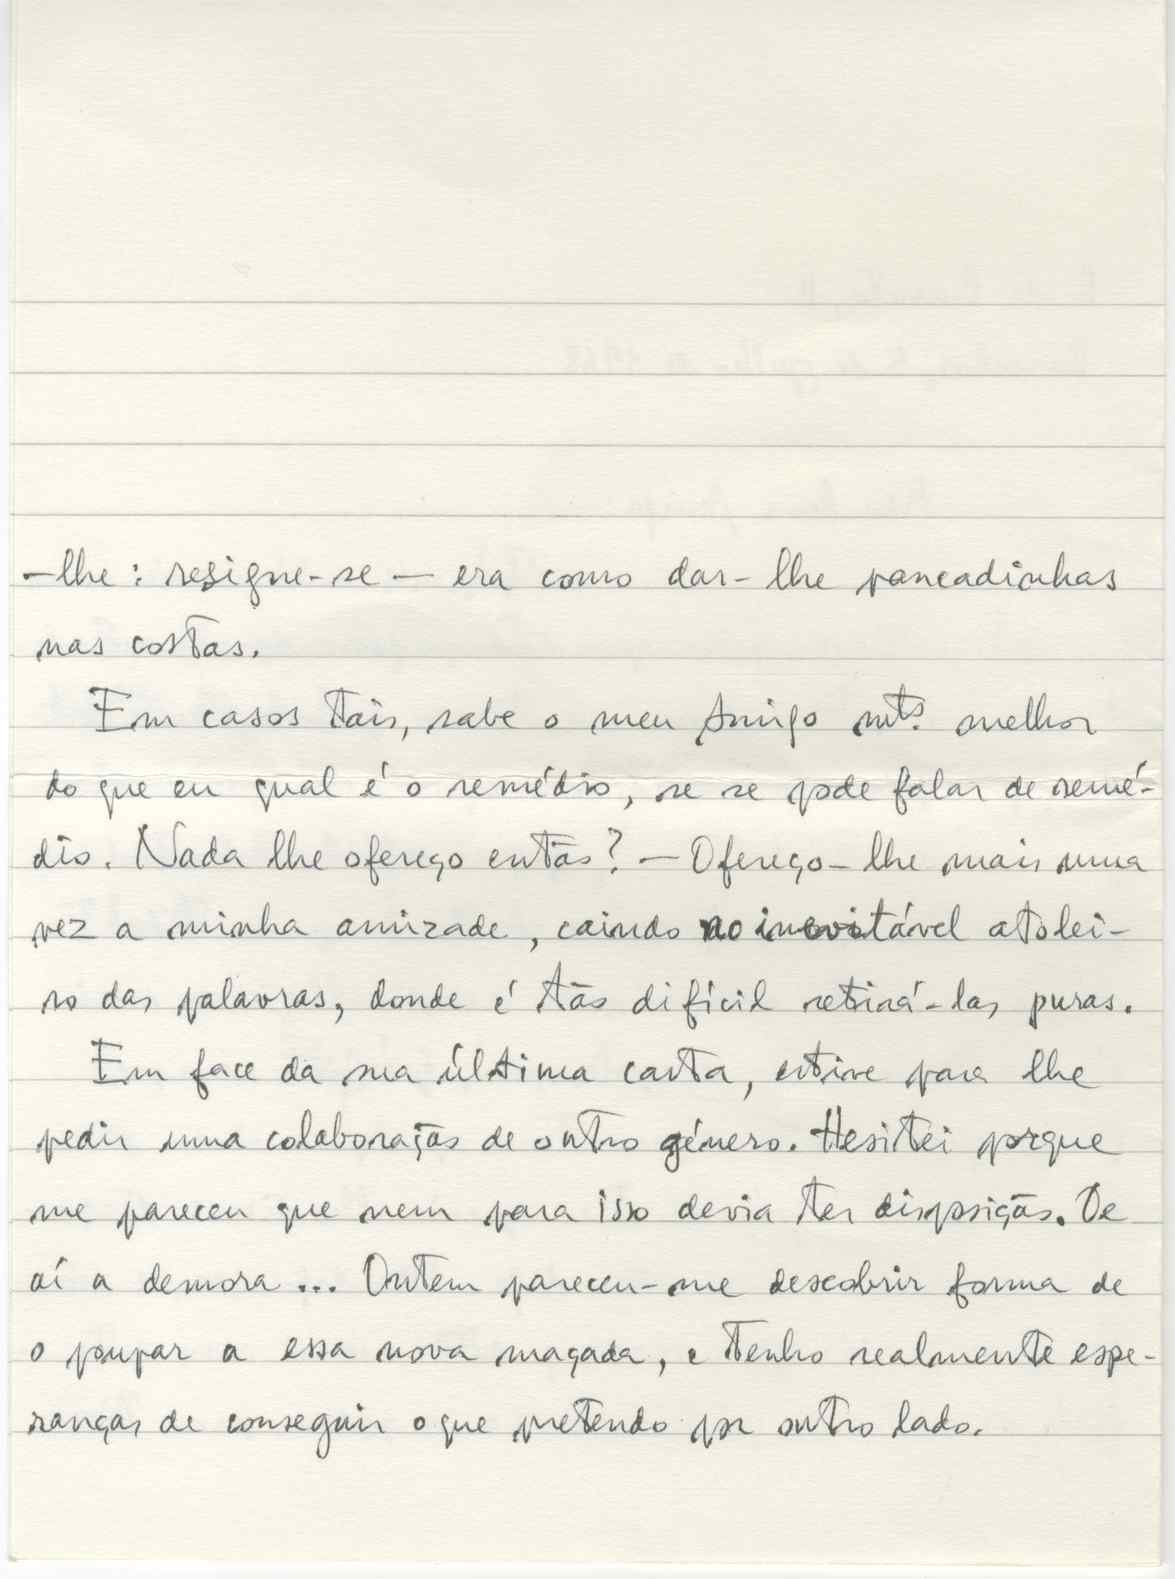 -lhe: resigne-se — era como dar-lhe pancadinhas
nas costas.
Em casos tais, sabe o meu Amigo mtº. melhor
do que eu qual é o remédio, se se pode falar de remé-
dio. Nada lhe ofereço então? — Ofereço-lhe mais uma
vez a minha amizade, caindo no inevitável atolei-
ro das palavras, donde é tão difícil retirá-las puras.
Em face da sua última carta, estive para lhe
pedir uma colaboração de outro género. Hesitei porque
me pareceu que nem para isso devia ter disposição. De
aí a demora... Ontem pareceu-me descobrir forma de
o poupar a essa nova maçada, e tenho realmente espe-
ranças de conseguir o que pretendo por outro lado.